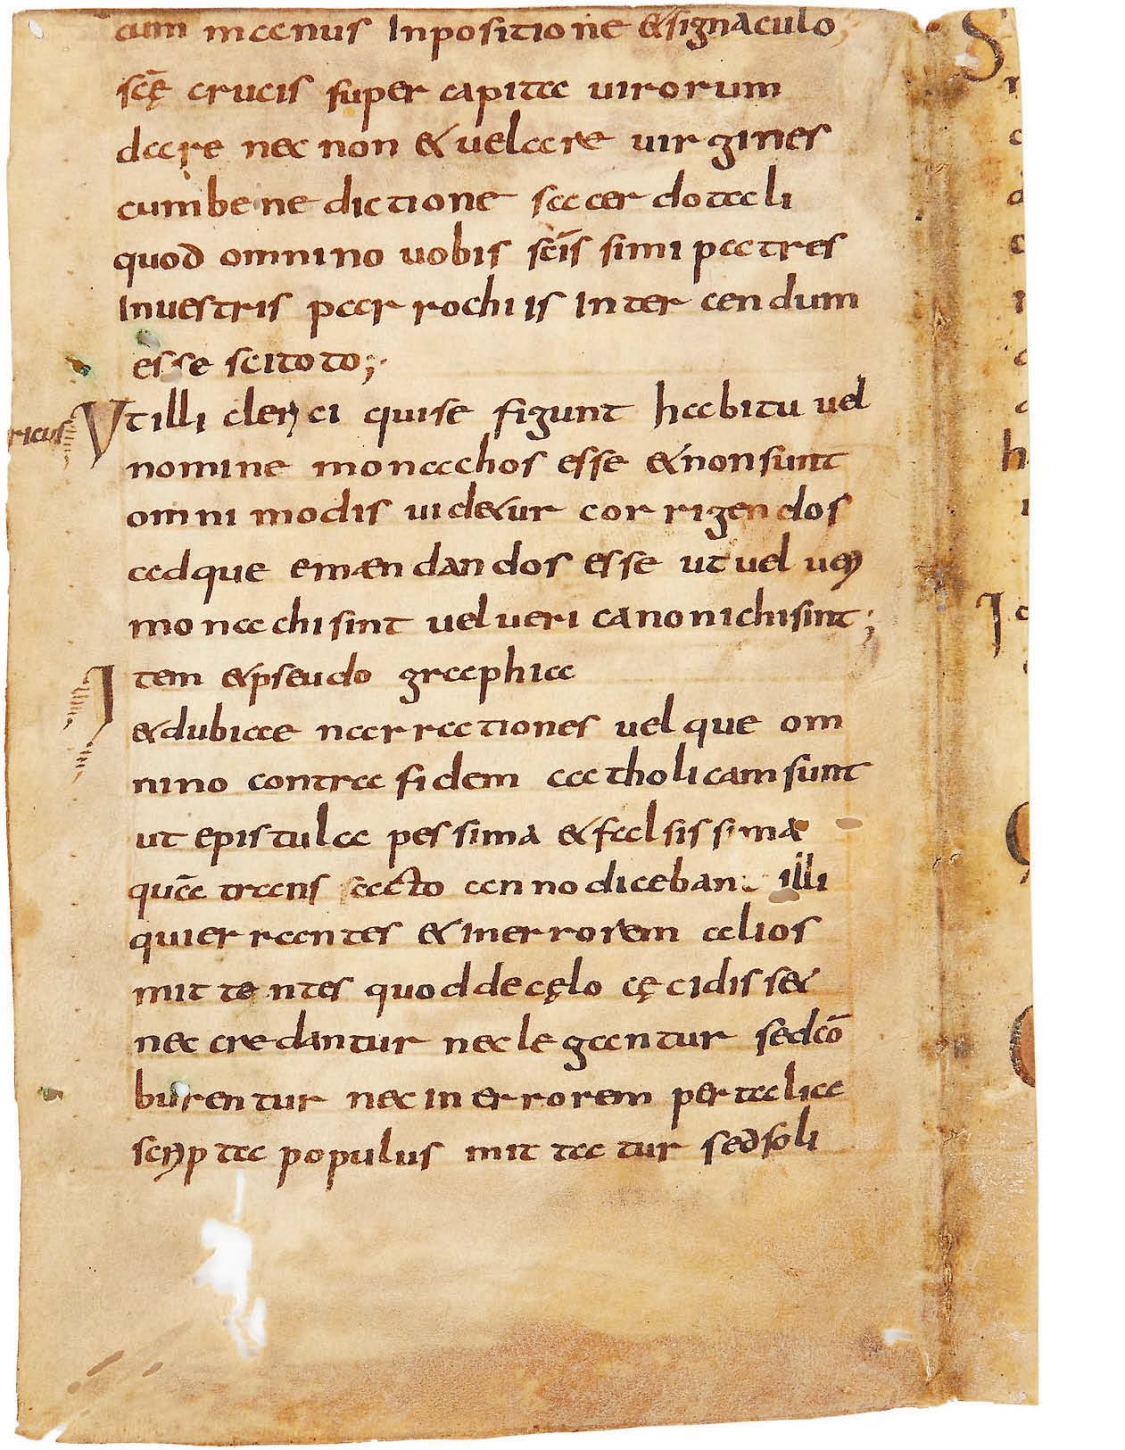 cum manus Inpositione & signaculo
scē crucis super capita uirorum
dare nec non & uelare uirgines
cum benedictione sacerdotali
quod omnino uobis scīs simi patres
Inuestris parrochiis Interdendum
esse scitoto;
Ut illi clerici qui se figunt habitu uel
nomine monachos esse & non sunt
omnimodis uidetur corrigendos
adque emændandos esse ut uel ueri
monachi sint uel ueri canonichi sint;
Item & pseudo graphia
& dubiae narrationes uel que om
nino contra fidem catholicam sunt
ut epistula pessima & falsissima
quā trans acto anno diceban illi
qui errantes & in errorem alios
mittentes quod de cęlo cęcidisset
nec credantur nec legantur sed cō
burentur nec in errorem per talia
scripta populus mittatur sed soli